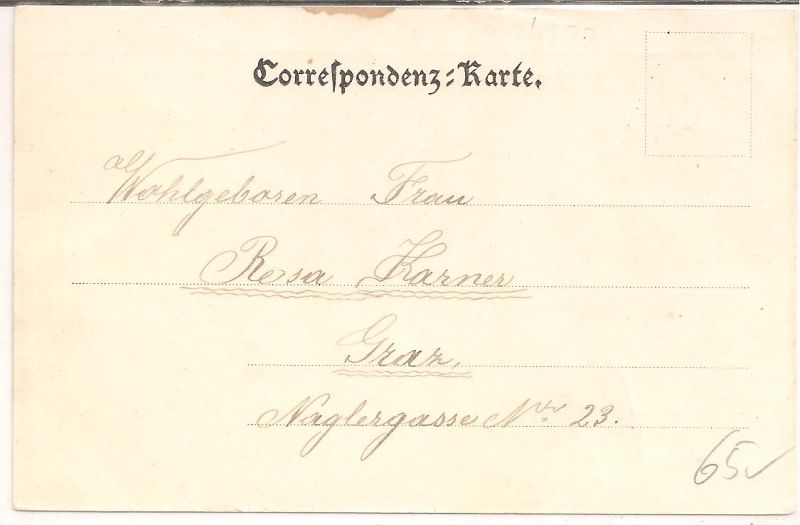 Correspondenz-Karte.
Wohlgeboren Frau
Resa Karner
Graz,
Naglergasse Nro 23.
65